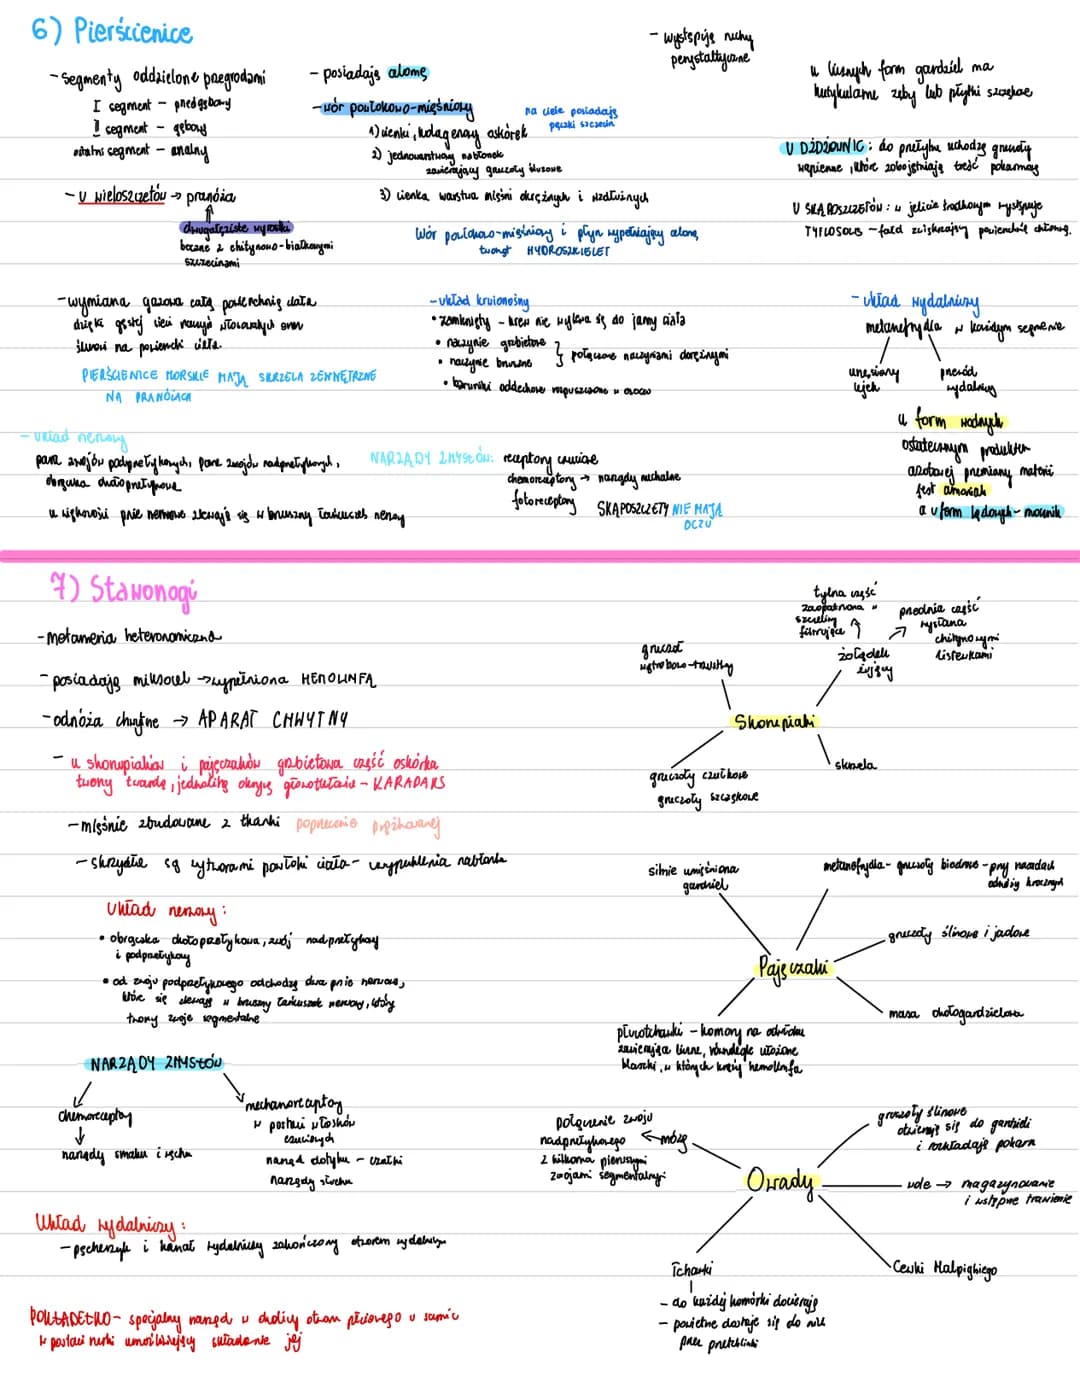 6) Pierścienice
- segmenty oddzielone przegrodami
I segment - przedgębowy
II segment - gębowy
ostatni segment - analny
- U wieloszczetów → pranóża
dwugałęziste wyrostki
boczne z chitynowo-białkowymi
szczecinami
- posiadają celomę
- wór powłokowo-mięśniowy
1) cienki, kolagenowy oskórek
2) jednowarstwowy nabłonek
zawierający gruczoły śluzowe
3) cienka warstwa mięśni okrężnych i wzdłużnych
na ciele posiadają
pęczki szczecin
Wór powłokowo-mięśniowy i płyn wypełniający celomę
tworzą HYDROSZKIELET
- występują ruchy
perystaltyczne
u licznych form gardziel ma
kutykularne zęby lub płytki szczękowe
U DŻDŻOWNIC: do przełyku uchodzą gruczoły
wapienne, które zobojętniają treść pokarmową
U SKĄPOSZCZETÓW: w jelicie środkowym występuje
TYFLOSOLIS - fałd zwiększający powierzchnię chłonną.
- wymiana gazowa całą powierzchnią ciała
dzięki gęstej sieci naczyń włosowatych oraz
śluzowi na powierzchni ciała.
PIERŚCIENICE MORSKIE MAJĄ SKRZELA ZEWNĘTRZNE
NA PRANÓŻACH
- układ krwionośny
• zamknięty - krew nie wylewa się do jamy ciała
• naczynie grzbietowe
• naczynie brzuszne
} połączone naczyniami okrężnymi
• barwniki oddechowe rozpuszczone w osoczu
- układ wydalniczy
metanefrydia w każdym segmencie
urzęsiony
lejek
przewód
wydalniczy
u form wodnych
ostatecznym produktem
azotowej przemiany materii
jest amoniak
a u form lądowych - mocznik
- układ nerwowy
para zwojów podprzełykowych, para zwojów nadprzełykowych,
obrączka okołoprzełykowa
u większości pnie nerwowe zlewają się w brzuszny łańcuszek nerwowy
NARZĄDY ZMYSŁÓW: receptory czuciowe
chemoreceptory → narządy nuchalne
fotoreceptory
SKĄPOSZCZETY NIE MAJĄ
OCZU
7) Stawonogi
- metameria heteronomiczna
- posiadają miksocel → wypełniona HEMOLIMFĄ
- odnóża chwytne → APARAT CHWYTNY
- u skorupiaków i pajęczaków grzbietowa część oskórka
tworzy twardą, jednolitą okrywę głowotułowia - KARAPAKS
- mięśnie zbudowane z tkanki poprzecznie prążkowanej
- skrzydła są wytworami powłoki ciała - uwypuklenia nabłonka
Układ nerwowy:
• obrączka okołoprzełykowa, zwój nadprzełykowy
i podprzełykowy
• od zwoju podprzełykowego odchodzą dwa pnie nerwowe,
które się zlewają w brzuszny łańcuszek nerwowy, który
tworzy zwoje segmentalne
NARZĄDY ZMYSŁÓW
chemoreceptory
narządy smaku i węchu
mechanoreceptory
w postaci włosków
czuciowych
narząd dotyku - czułki
narządy słuchu
Układ wydalniczy:
- pęcherzyk i kanał wydalniczy zakończony otworem wydalniczym
POKŁADEŁKO - specjalny narząd w okolicy otworu płciowego u samic
w postaci rurki umożliwiający składanie jaj
gruczoł
wątrobowo-trzustkowy
tylna część
zaopatrzona w
szczeliny
filtrujące
przednia część
wysłana
chitynowymi
listewkami
żołądek
żujący
Skorupiaki
gruczoły czułkowe
gruczoły szczękowe
skrzela
silnie umięśniona
gardziel
metanefrydia - gruczoły biodrowe - przy nasadach
odnóży krocznych
gruczoły ślinowe i jadowe
Pajęczaki
masa okołogardzielowa
płucotchawki - komory na odwłoku
zawierające liczne, równolegle ułożone
blaszki, w których krąży hemolimfa
połączenie zwoju
nadprzełykowego ← mózg
z kilkoma pierwszymi
zwojami segmentalnymi
gruczoły ślinowe
otwierają się do gardzieli
i rozkładają pokarm
Owady
wole → magazynowanie
i wstępne trawienie
Cewki Malpighiego
Tchawki
- do każdej komórki docierają
- powietrze dostaje się do nich
przez przetchlinki